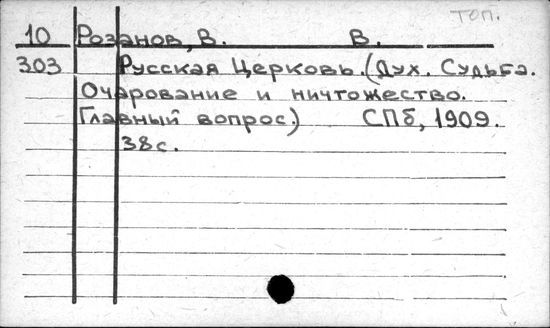 топ.
10 Розанов, В. В.
303 Русская Церковь. (Дух. Судьба.
Очарование и ничтожество.
Главный вопрос.) СПб, 1909.
38с.